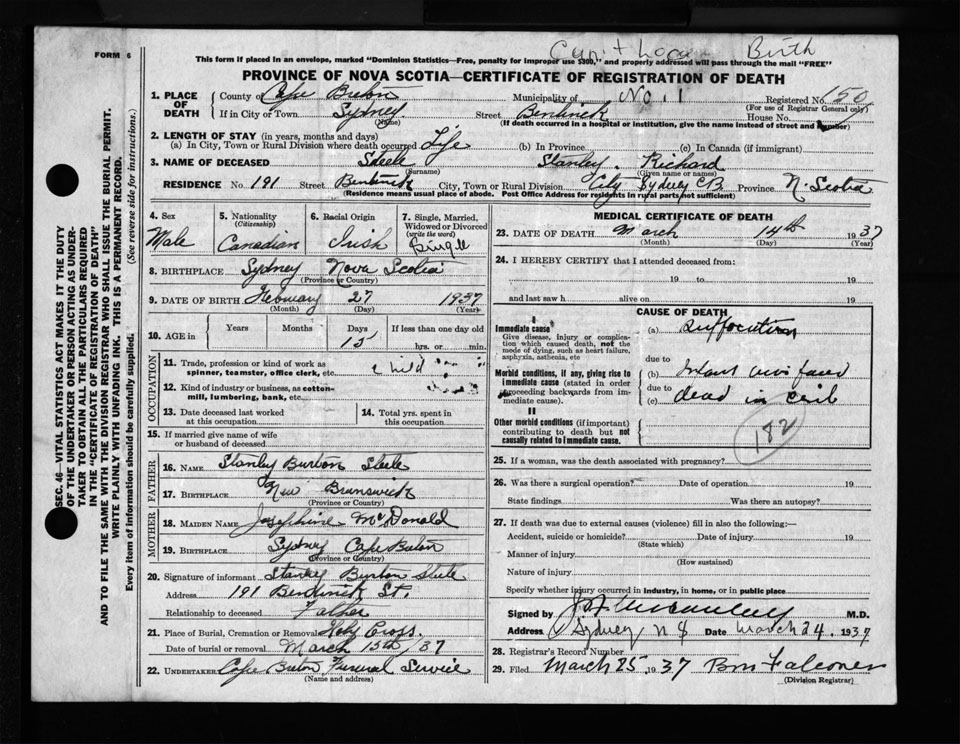 Birth
FORM 6
This form if placed in an envelope, marked "Dominion Statistics—Free, penalty for improper use $300," and properly addressed will pass through the mail "FREE"
PROVINCE OF NOVA SCOTIA—CERTIFICATE OF REGISTRATION OF DEATH
1. PLACE OF DEATH County of Cape Breton Municipality of No. 1 Registered No. 150
(For use of Registrar General only)
If in City or Town Sydney Street Bentinck House No.
(Name) (If death occurred in a hospital or institution, give the name instead of street and number)
2. LENGTH OF STAY (in years, months and days)
(a) In City, Town or Rural Division where death occurred Life (b) In Province (c) In Canada (if immigrant)
3. NAME OF DECEASED Steele Stanley Richard
(Surname) (Given name or names)
RESIDENCE No. 191 Street Bentinck City, Town or Rural Division City Sydney CB Province N. Scotia
(Residence means usual place of abode. Post Office Address for residents in rural parts not sufficient)
4. Sex Male
5. Nationality (Citizenship) Canadian
6. Racial Origin Irish
7. Single, Married, Widowed or Divorced (write the word) Single
8. BIRTHPLACE Sydney Nova Scotia
(Province or Country)
9. DATE OF BIRTH February 27 1937
(Month) (Day) (Year)
10. AGE in Years Months Days 15 If less than one day old hrs. or min.
OCCUPATION
11. Trade, profession or kind of work as spinner, teamster, office clerk, etc. Child
12. Kind of industry or business, as cotton-mill, lumbering, bank, etc.
13. Date deceased last worked at this occupation
14. Total yrs. spent in this occupation
15. If married give name of wife or husband of deceased
FATHER
16. NAME Stanley Burton Steele
17. BIRTHPLACE New Brunswick
(Province or Country)
MOTHER
18. MAIDEN NAME Josephine McDonald
19. BIRTHPLACE Sydney Cape Breton
(Province or Country)
20. Signature of informant Stanley Burton Steele
Address 191 Bentinck St.
Relationship to deceased Father
21. Place of Burial, Cremation or Removal Holy Cross
Date of burial or removal March 15th/37
22. UNDERTAKER Cape Breton Funeral Service
(Name and address)
MEDICAL CERTIFICATE OF DEATH
23. DATE OF DEATH March 14th 1937
(Month) (Day) (Year)
24. I HEREBY CERTIFY that I attended deceased from:
19 to 19
and last saw h alive on 19
CAUSE OF DEATH
I
Immediate cause (a) Suffocation
Give disease, injury or complication which caused death, not the mode of dying, such as heart failure, asphyxia, asthenia, etc
due to
Morbid conditions, if any, giving rise to immediate cause (stated in order proceeding backwards from immediate cause). (b) Infant was found
due to
(c) dead in crib
II
Other morbid conditions (if important) contributing to death but not causally related to immediate cause.
182
25. If a woman, was the death associated with pregnancy?
26. Was there a surgical operation? Date of operation 19
State findings Was there an autopsy?
27. If death was due to external causes (violence) fill in also the following:—
Accident, suicide or homicide? Date of injury 19
(State which)
Manner of injury
(How sustained)
Nature of injury
Specify whether injury occurred in industry, in home, or in public place
Signed by M.D.
Address Sydney N S Date March 24. 1937
28. Registrar's Record Number
29. Filed March 25 1937 Falconer
(Division Registrar)
SEC. 46—VITAL STATISTICS ACT MAKES IT THE DUTY
OF THE UNDERTAKER OR PERSON ACTING AS UNDER-
TAKER TO OBTAIN ALL THE PARTICULARS REQUIRED
IN THE "CERTIFICATE OF REGISTRATION OF DEATH"
AND TO FILE THE SAME WITH THE DIVISION REGISTRAR WHO SHALL ISSUE THE BURIAL PERMIT.
WRITE PLAINLY WITH UNFADING INK. THIS IS A PERMANENT RECORD.
Every item of information should be carefully supplied. (See reverse side for instructions.)